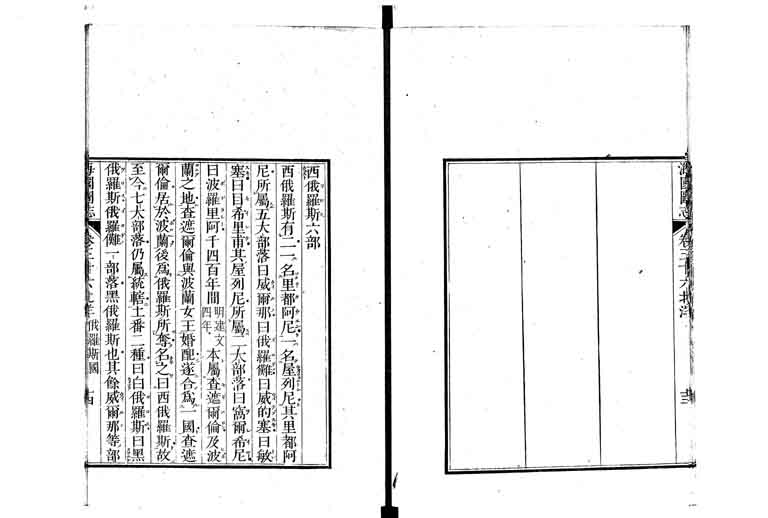 海國圖志 卷三十六北洋 十三
西俄羅斯六部
西俄羅斯有二一名里都阿尼一名屋列尼其里都阿
尼所屬五大部落曰威爾那曰俄羅儺曰威的塞曰敏
塞曰目希里甫其屋列尼所屬二大部落曰窩爾希尼
曰波羅里阿千四百年間明建文四年本屬查遮爾倫及波
蘭之地查遮爾倫與波蘭女王婚配遂合爲一國查遮
爾倫居於波蘭後爲俄羅斯所奪名之曰西俄羅斯故
至今七大部落仍屬統轄土番二種曰白俄羅斯曰黑
俄羅斯俄羅儺一部落黑俄羅斯也其餘威爾那等部
海國圖志 卷三十六北洋 俄羅斯國 十四